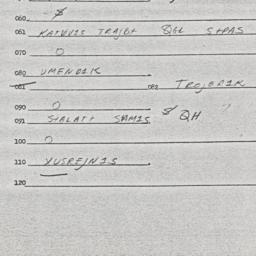 060
061 KATUUIS TRAJBT QGL STPAS
070 O
080 UMENDIK
081 082 TROJBDIK
090 O
091 STALATT SAMIS & QH
100 O
110 XUSREJNIS
120